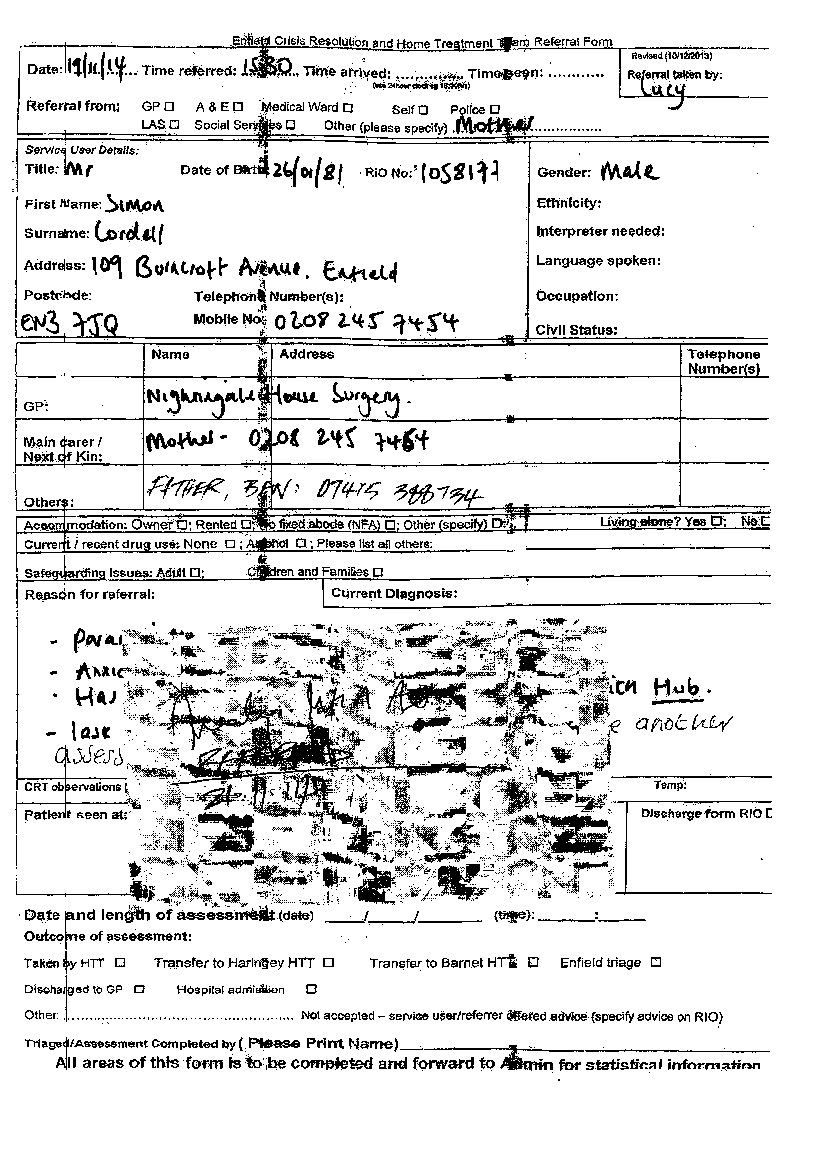 Enfield Crisis Resolution and Home Treatment Team Referral Form
Revised (10/12/2013)
Date: 19/11/14 Time referred: 1530 Time arrived: .............. Time seen: ............
Referral taken by: Lucy
Referral from: GP ☐ A & E ☐ Medical Ward ☐ Self ☐ Police ☐
LAS ☐ Social Services ☐ Other (please specify) Mother
Service User Details:
Title: Mr Date of Birth 26/01/81 RiO No: 1058177 Gender: Male
First Name: Simon Ethnicity:
Surname: Cordell Interpreter needed:
Address: 109 Burncroft Avenue, Enfield Language spoken:
Postcode: Telephone Number(s): Occupation:
EN3 7JQ Mobile No: 0208 245 7454 Civil Status:
Name Address Telephone Number(s)
GP: Nighnigale House Surgery.
Main carer / Next of Kin: Mother - 0208 245 7454
Others: FATHER, BEN: 07415 388734
Accommodation: Owner ☐; Rented ☐; No fixed abode (NFA) ☐; Other (specify) ☐: Living alone? Yes ☐; No ☐
Current / recent drug use: None ☐; Alcohol ☐; Please list all others:
Safeguarding Issues: Adult ☐; Children and Families ☐
Reason for referral: Current Diagnosis:
- Parai
- Anxie
· Has Hub.
- last another
assess
CRT observations Temp:
Patient seen at: Discharge form RIO ☐
Date and length of assessment (date) ____/____/____ (time): ______:______
Outcome of assessment:
Taken by HTT ☐ Transfer to Haringey HTT ☐ Transfer to Barnet HTT ☐ Enfield triage ☐
Discharged to GP ☐ Hospital admission ☐
Other: ........................................ Not accepted – service user/referrer offered advice (specify advice on RIO)
Triaged/Assessment Completed by ( Please Print Name)
All areas of this form is to be completed and forward to Admin for statistical information